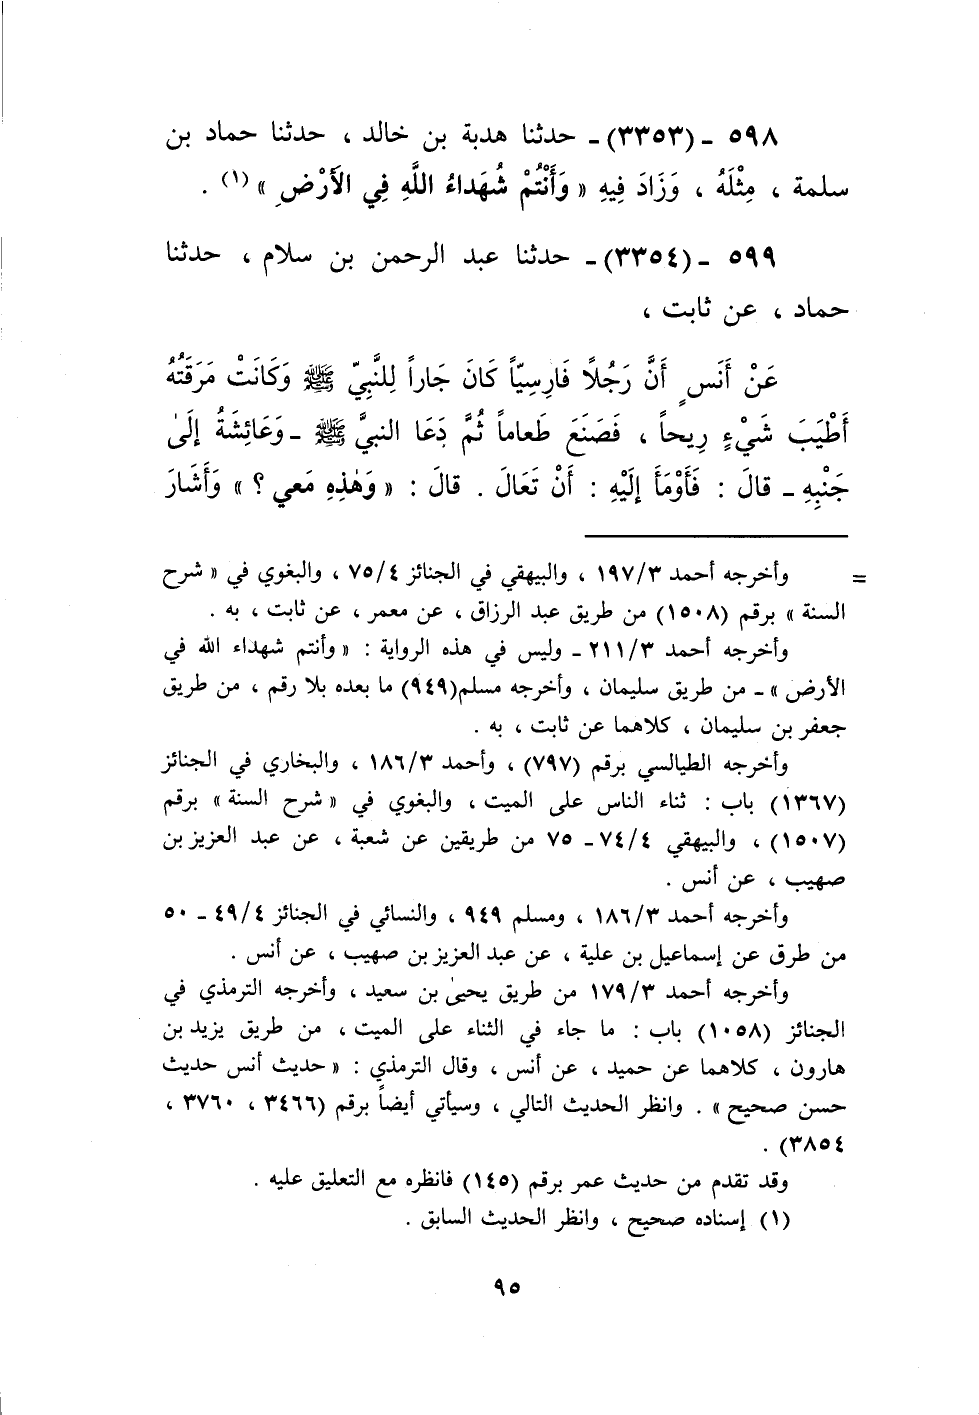 ٥٩٨ ـ (٣٣٥٣) ـ حدثنا هدبة بن خالد ، حدثنا حماد بن
سلمة ، مِثْلَهُ ، وَزَادَ فِيهِ « وَأَنْتُمْ شُهَداءُ اللَّهِ فِي الأَرْضِ » (١) .
٥٩٩ ـ (٣٣٥٤) ـ حدثنا عبد الرحمن بن سلام ، حدثنا
حماد ، عن ثابت ،
عَنْ أَنَسٍ أَنَّ رَجُلًا فَارِسِيّاً كَانَ جَاراً لِلنَّبِيِّ ﷺ وَكَانَتْ مَرَقَتُهُ
أَطْيَبَ شَيْءٍ رِيحاً ، فَصَنَعَ طَعاماً ثُمَّ دَعَا النبيَّ ﷺ ـ وَعَائِشَةُ إِلَىٰ
جَنْبِهِ ـ قالَ : فَأَوْمَأَ إِلَيْهِ : أَنْ تَعَالَ . قالَ : « وَهٰذِهِ مَعي ؟ » وَأَشَارَ
= وأخرجه أحمد ١٩٧/٣ ، والبيهقي في الجنائز ٧٥/٤ ، والبغوي في « شرح
السنة » برقم (١٥٠٨) من طريق عبد الرزاق ، عن معمر ، عن ثابت ، به .
وأخرجه أحمد ٢١١/٣ ـ وليس في هذه الرواية : « وأنتم شهداء الله في
الأرض » ـ من طريق سليمان ، وأخرجه مسلم(٩٤٩) ما بعده بلا رقم ، من طريق
جعفر بن سليمان ، كلاهما عن ثابت ، به .
وأخرجه الطيالسي برقم (٧٩٧) ، وأحمد ١٨٦/٣ ، والبخاري في الجنائز
(١٣٦٧) باب : ثناء الناس على الميت ، والبغوي في « شرح السنة » برقم
(١٥٠٧) ، والبيهقي ٧٤/٤ ـ ٧٥ من طريقين عن شعبة ، عن عبد العزيز بن
صهيب ، عن أنس .
وأخرجه أحمد ١٨٦/٣ ، ومسلم ٩٤٩ ، والنسائي في الجنائز ٤٩/٤ ـ ٥٠
من طرق عن إسماعيل بن علية ، عن عبد العزيز بن صهيب ، عن أنس .
وأخرجه أحمد ١٧٩/٣ من طريق يحيىٰ بن سعيد ، وأخرجه الترمذي في
الجنائز (١٠٥٨) باب : ما جاء في الثناء على الميت ، من طريق يزيد بن
هارون ، كلاهما عن حميد ، عن أنس ، وقال الترمذي : « حديث أنس حديث
حسن صحيح » . وانظر الحديث التالي ، وسيأتي أيضاً برقم (٣٤٦٦ ، ٣٧٦٠ ،
٣٨٥٤) .
وقد تقدم من حديث عمر برقم (١٤٥) فانظره مع التعليق عليه .
(١) إسناده صحيح ، وانظر الحديث السابق .
٩٥